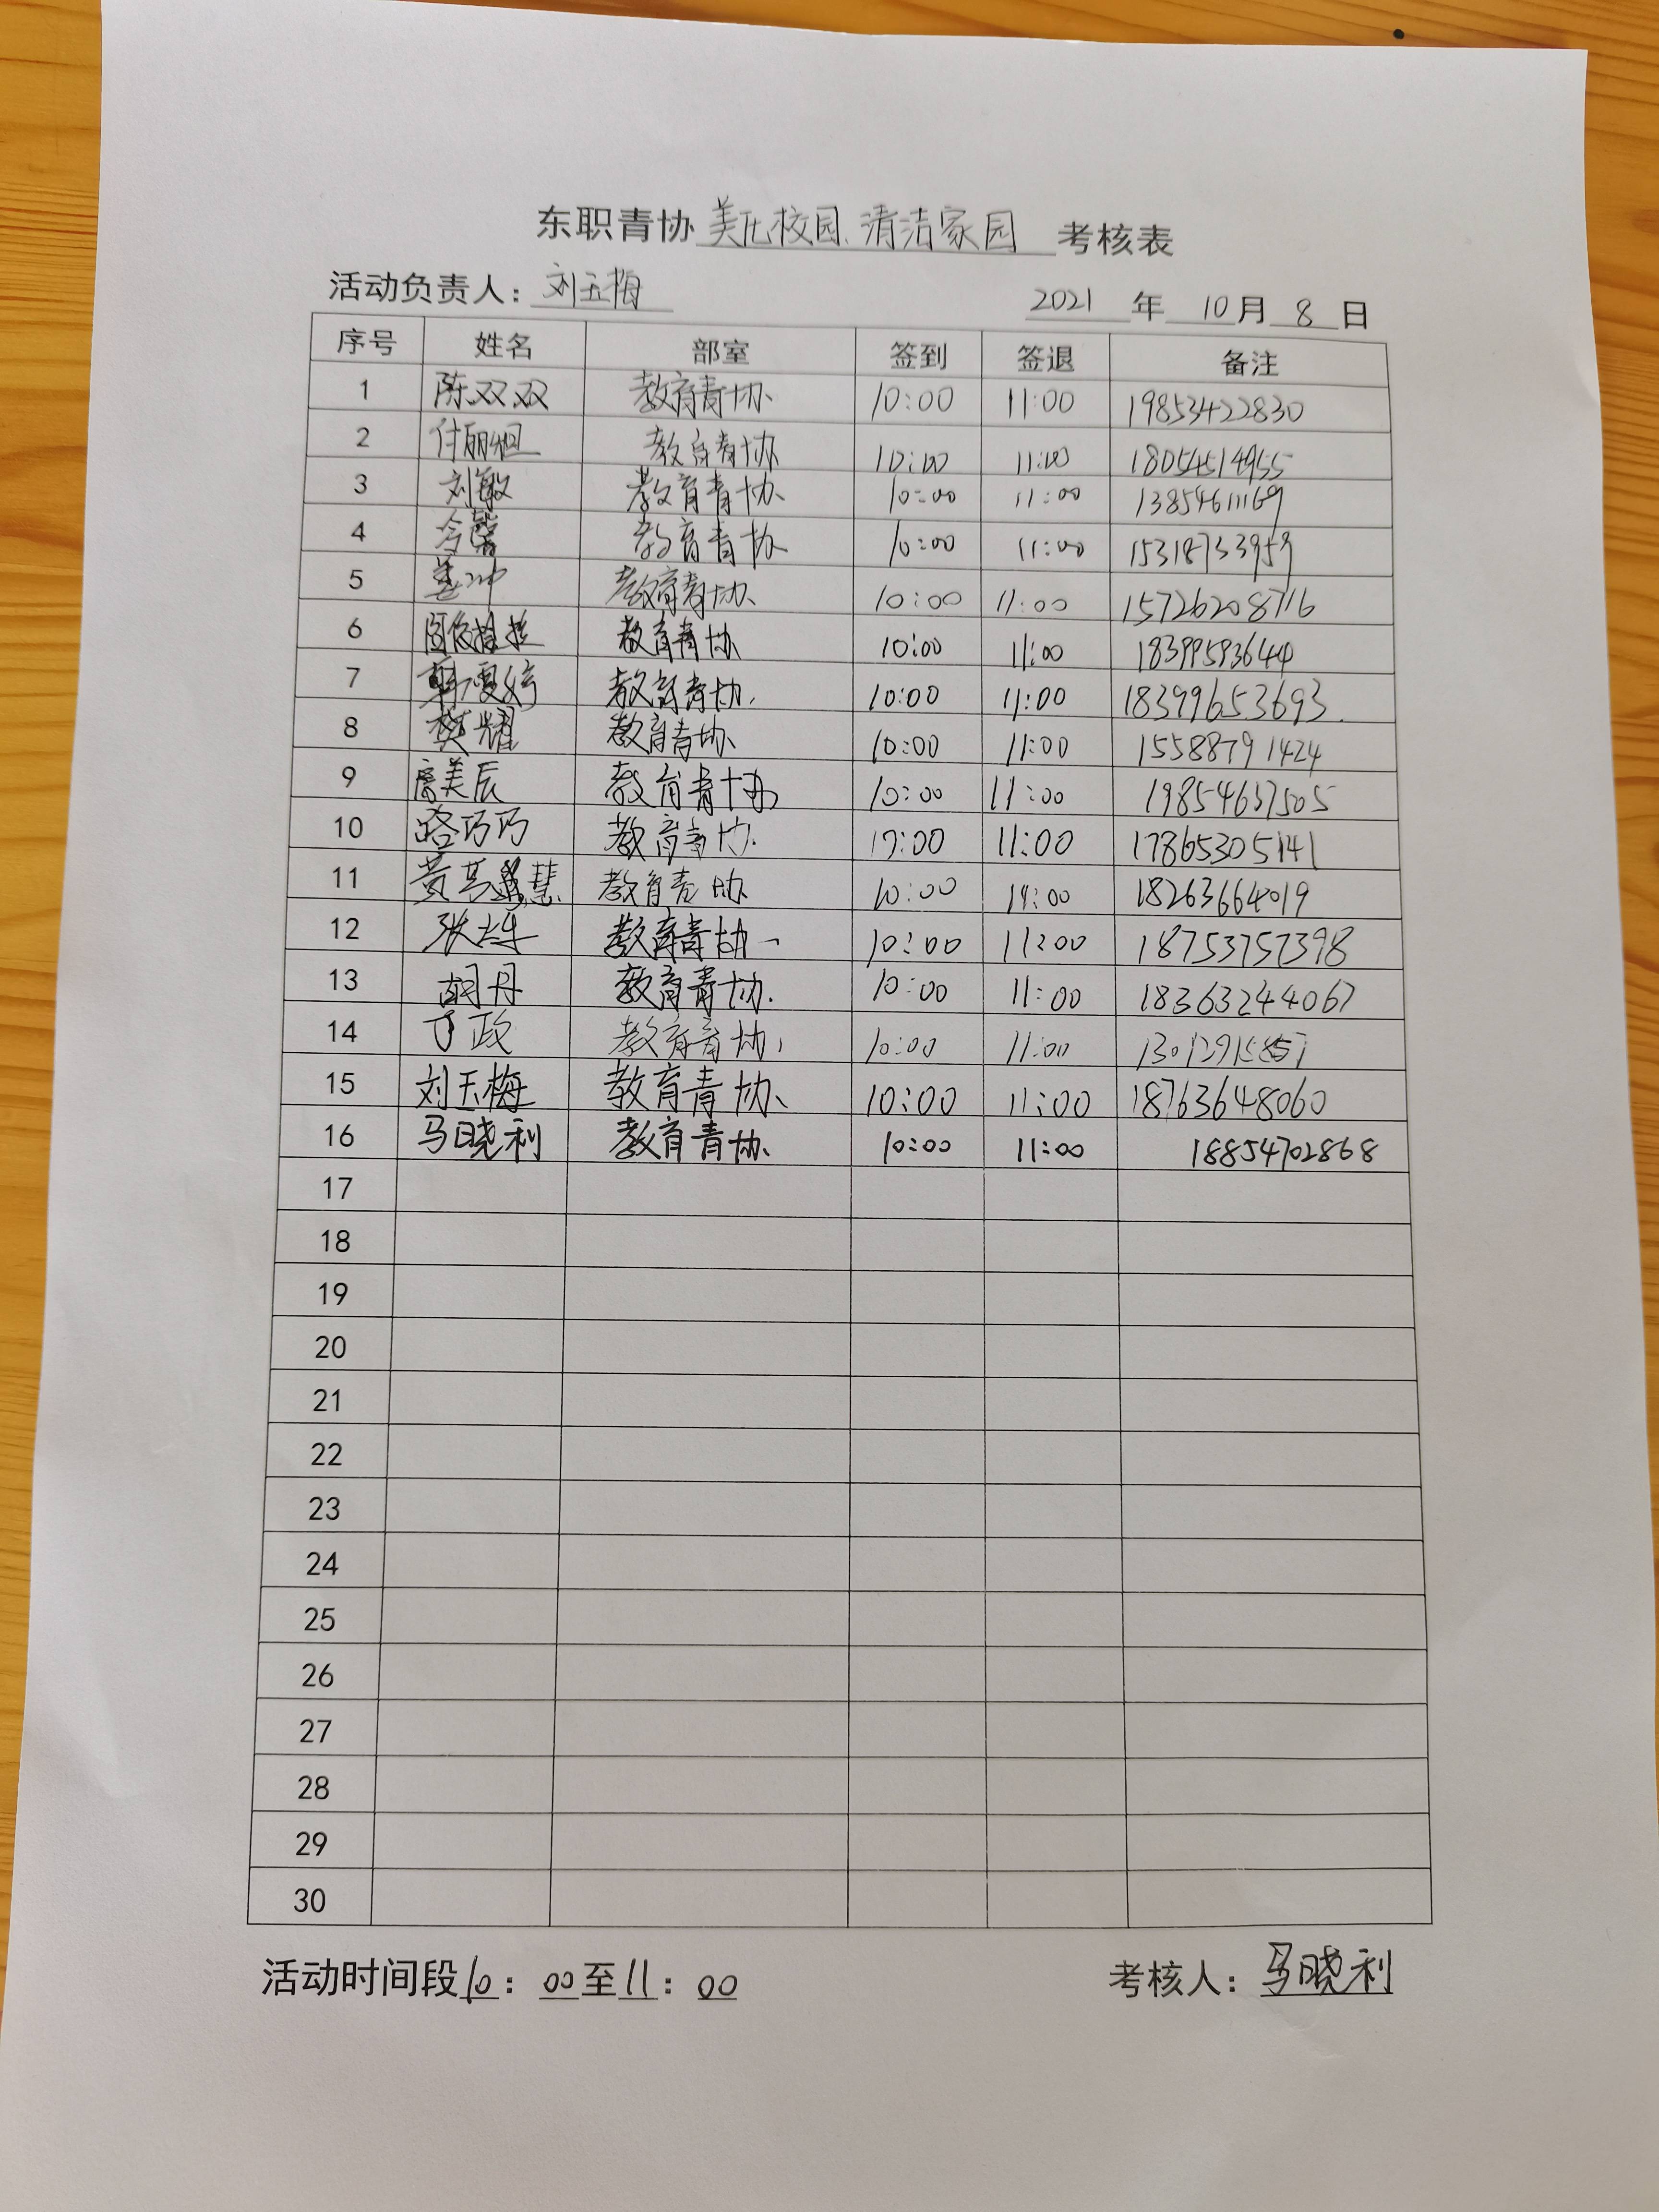 东职青协美化校园、清洁家园考核表
活动负责人：刘玉梅 2021年10月8日
序号 姓名 部室 签到 签退 备注
1 陈双双 教育青协 10:00 11:00 19853422830
2 教育青协 10:00 11:00 18054514955
3 刘敏 教育青协 10:00 11:00 13854611169
4 教育青协 10:00 11:00 15318733959
5 姜冲 教育青协 10:00 11:00 15726208716
6 教育青协 10:00 11:00 18399593644
7 教育青协 10:00 11:00 18399653693
8 樊耀 教育青协 10:00 11:00 15588791424
9 美辰 教育青协 10:00 11:00 19854637505
10 路巧巧 教育青协 10:00 11:00 17865305141
11 教育青协 10:00 11:00 18263664019
12 教育青协 10:00 11:00 18753757398
13 胡丹 教育青协 10:00 11:00 18363244067
14 丁政 教育青协 10:00 11:00
15 刘玉梅 教育青协 10:00 11:00 18763648060
16 马晓利 教育青协 10:00 11:00 18854702868
17
18
19
20
21
22
23
24
25
26
27
28
29
30
活动时间段10：00至11：00 考核人：马晓利